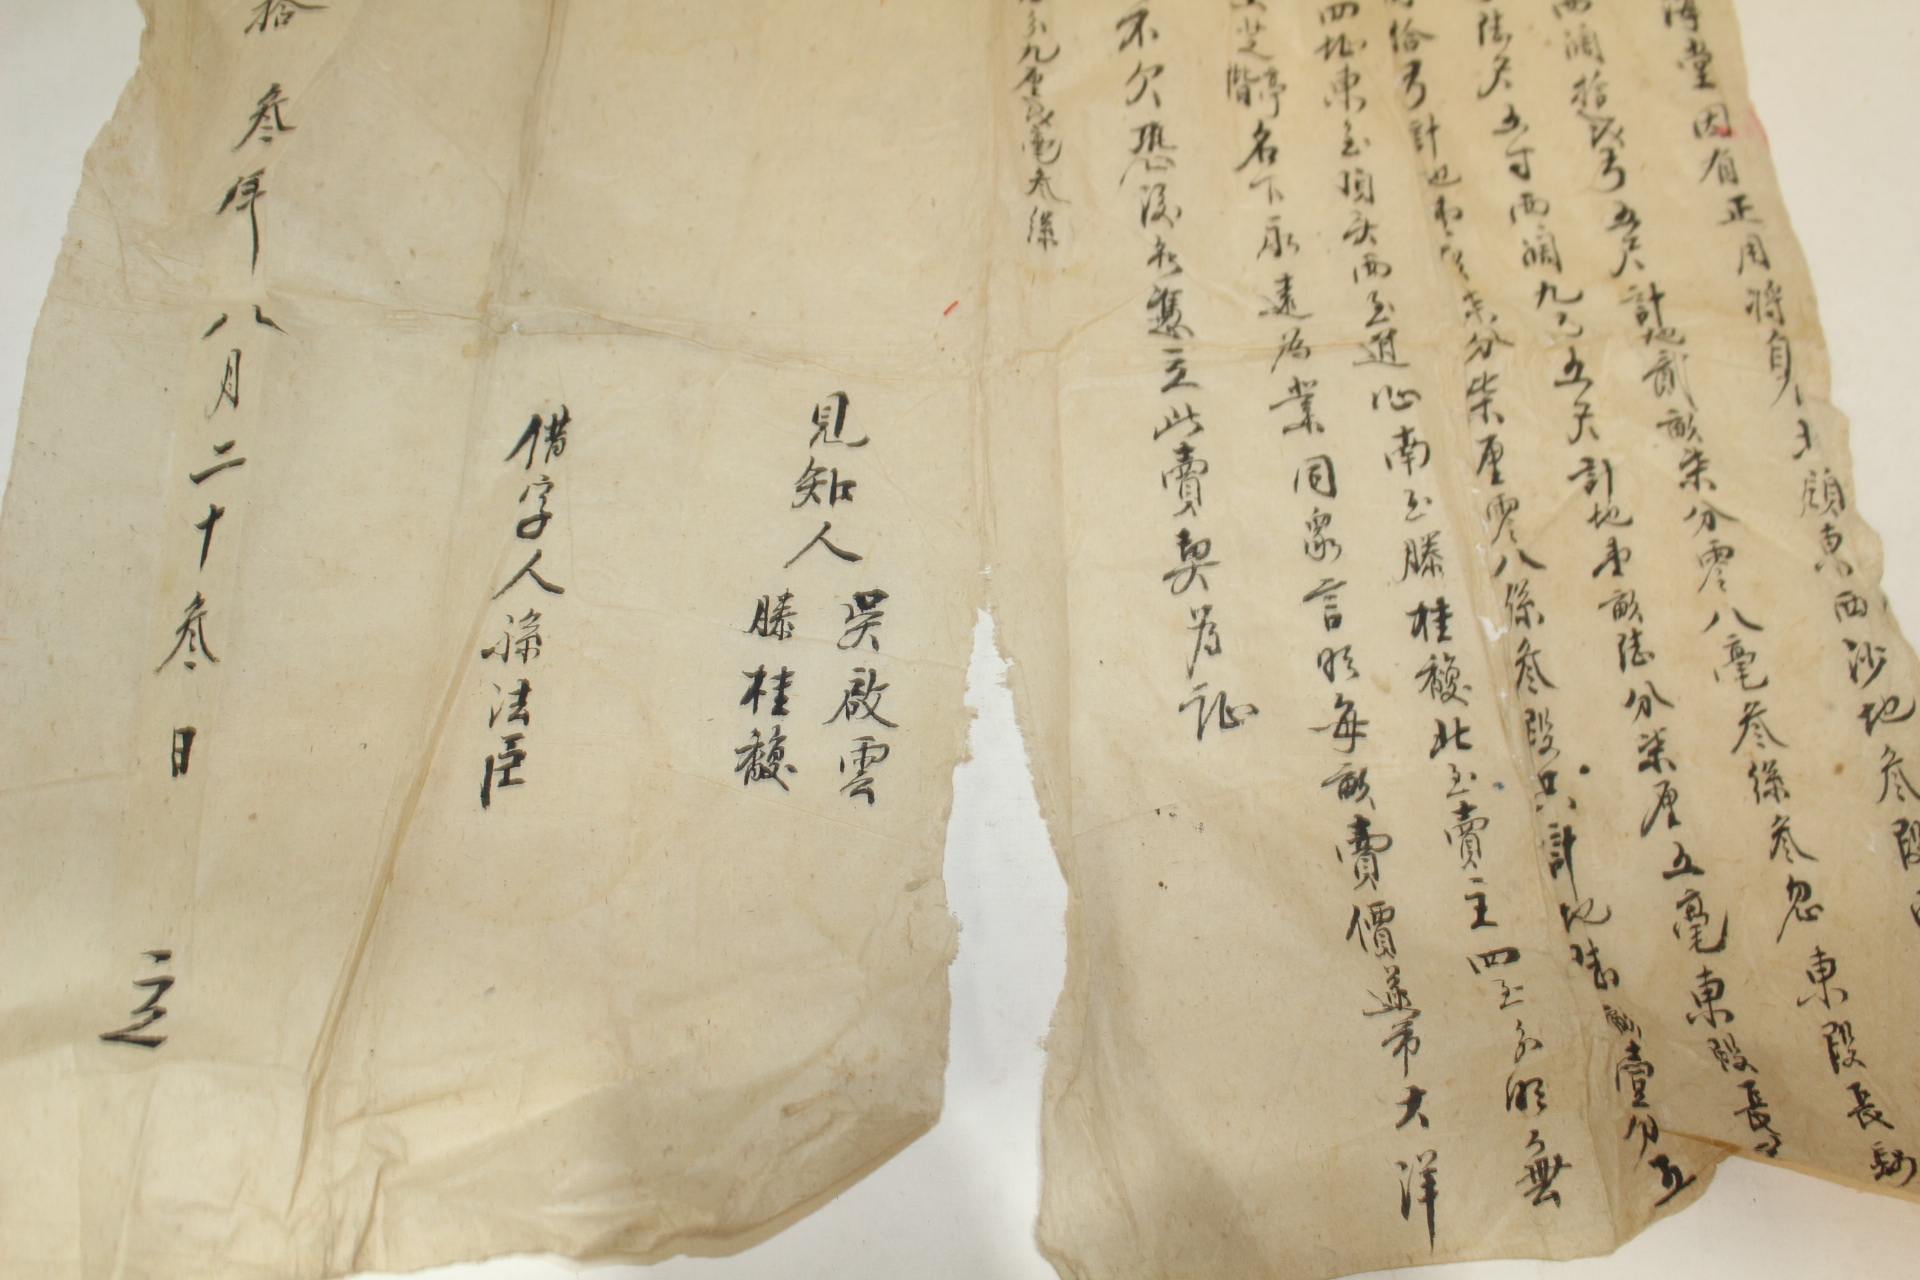 堂因有正用將自
顧東西沙地叁段
西濶拾弍弓五尺計地貳畝柒分零八毫叁絲叁忽東段長
陸尺五寸西濶九弓五尺計地壹畝陸分柒厘五毫東段長
拾弓計地壹畝柒分柒厘零八絲叁段共計地陸畝壹分五
四址東至頂头西至道心南至滕桂馥北至賣主四至分明無
芝階亭名下永遠為業同眾言明每畝賣價遂市大洋
不欠恐後無憑立此賣契為証
分九厘弍毫叁絲
見知人
吳啟雲
滕桂馥
借字人孫法臣
拾叁年八月二十叁日 立